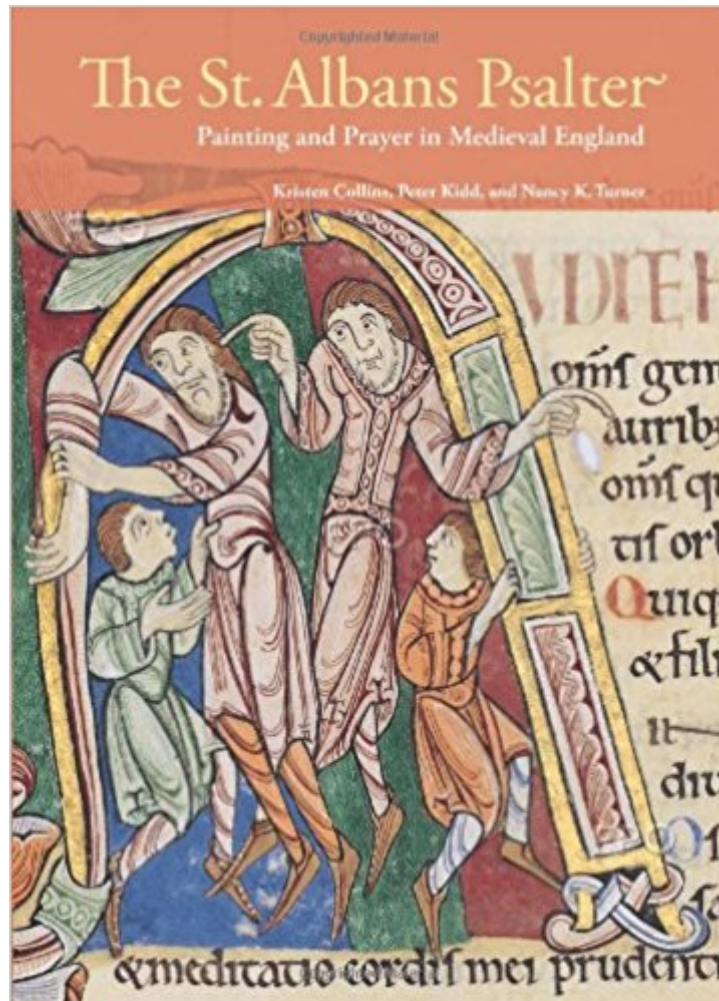 Copyrighted Material
The St. Albans Psalter
Painting and Prayer in Medieval England
Kristen Collins, Peter Kidd, and Nancy K. Turner
UDITE H
om̄s gem
aurib;
om̄s q
tis orb
Quiq
& fili
diu
& meditatio cordis mei prudenti